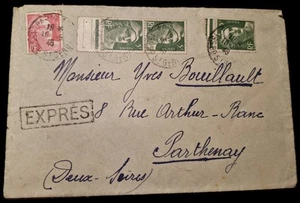 Monsieur Yves Bouillault
8 Rue Arthur-Ranc
EXPRÉS
Parthenay
(Deux-Sèvres)